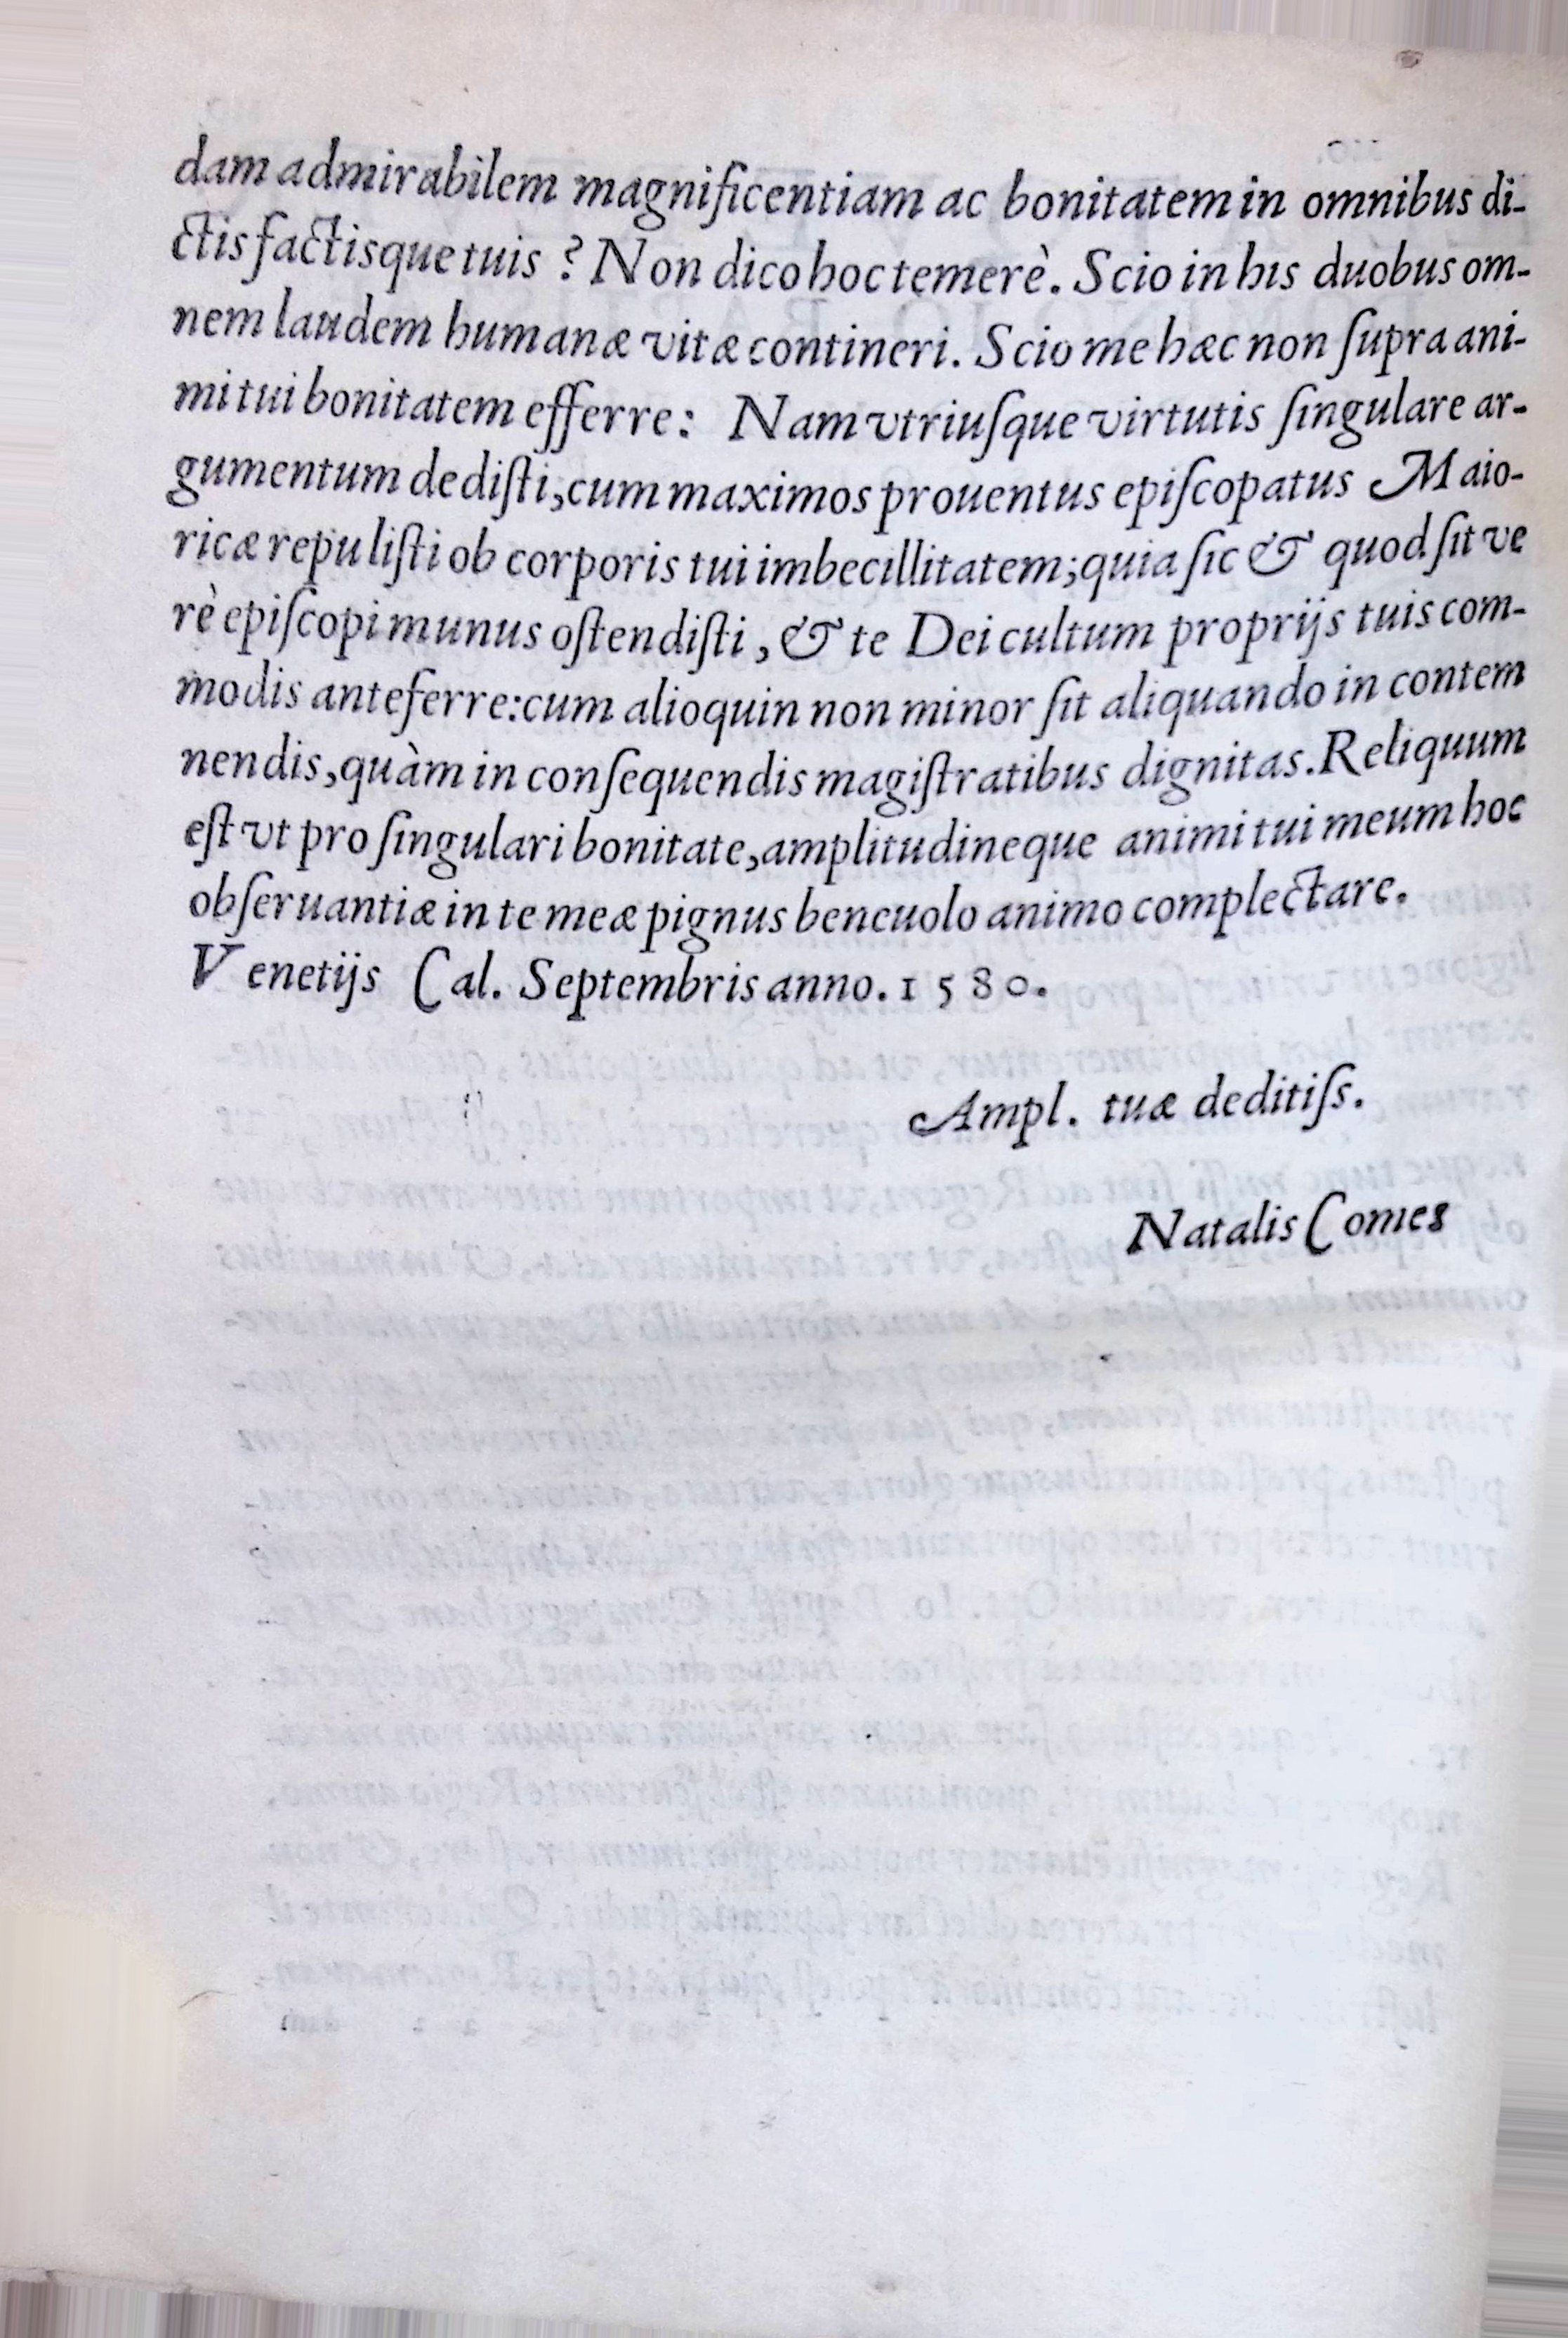 dam admirabilem magnificentiam ac bonitatem in omnibus di-
ctis factisque tuis ? Non dico hoc temerè. Scio in his duobus om-
nem laudem humanæ vitæ contineri. Scio me hæc non ſupra ani-
mi tui bonitatem efferre: Nam vtriuſque virtutis ſingulare ar-
gumentum dediſti, cum maximos prouentus epiſcopatus Maio-
ricæ repuliſti ob corporis tui imbecillitatem; quia ſic & quod ſit ve
rè epiſcopi munus oſtendiſti, & te Dei cultum proprijs tuis com-
modis anteferre: cum alioquin non minor ſit aliquando in contem
nendis, quàm in conſequendis magiſtratibus dignitas. Reliquum
eſt vt pro ſingulari bonitate, amplitudineque animi tui meum hoc
obſeruantiæ in te meæ pignus beneuolo animo complectare.
Venetijs Cal. Septembris anno. 1580.
Ampl. tuæ deditiſs.
Natalis Comes